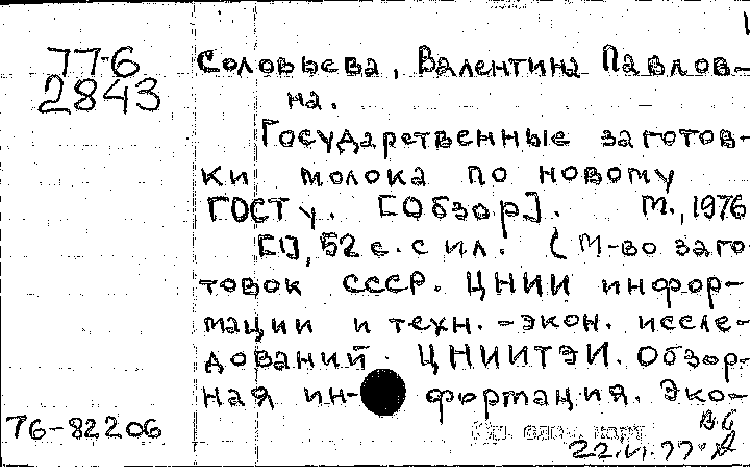 77-6
2843
Соловьева, Валентина Павлов-
на.
Государственные заготов-
ки молока по новому
ГОСТу. [Обзор]. М., 1976
[1], 52 с. с ил. (М-во заго-
товок СССР. ЦНИИ инфор-
мации и техн.-экон. иссле-
дований. ЦНИИТЭИ. Обзор-
ная информация. Эко-
76-82206
22.VI.77